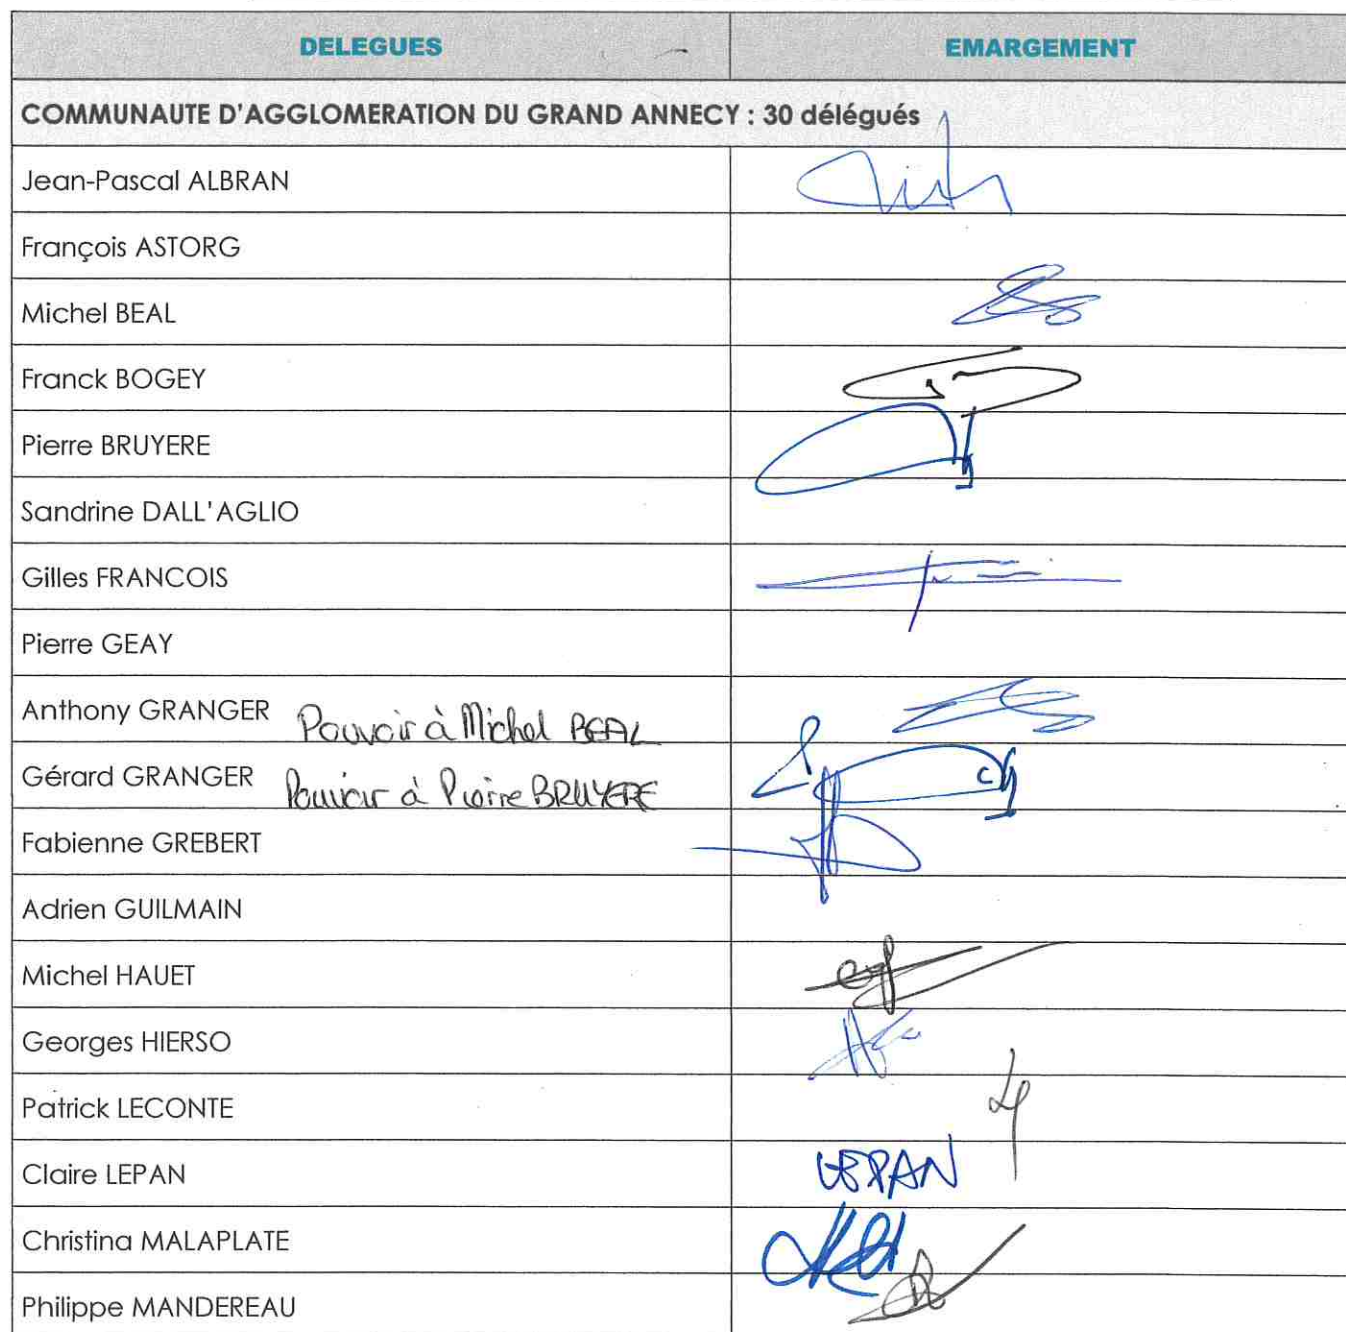 DELEGUES EMARGEMENT
COMMUNAUTE D'AGGLOMERATION DU GRAND ANNECY : 30 délégués
Jean-Pascal ALBRAN
François ASTORG
Michel BEAL
Franck BOGEY
Pierre BRUYERE
Sandrine DALL'AGLIO
Gilles FRANCOIS
Pierre GEAY
Anthony GRANGER Pouvoir à Michel BEAL
Gérard GRANGER Pouvoir à Pierre BRUYERE
Fabienne GREBERT
Adrien GUILMAIN
Michel HAUET
Georges HIERSO
Patrick LECONTE
Claire LEPAN LEPAN
Christina MALAPLATE
Philippe MANDEREAU